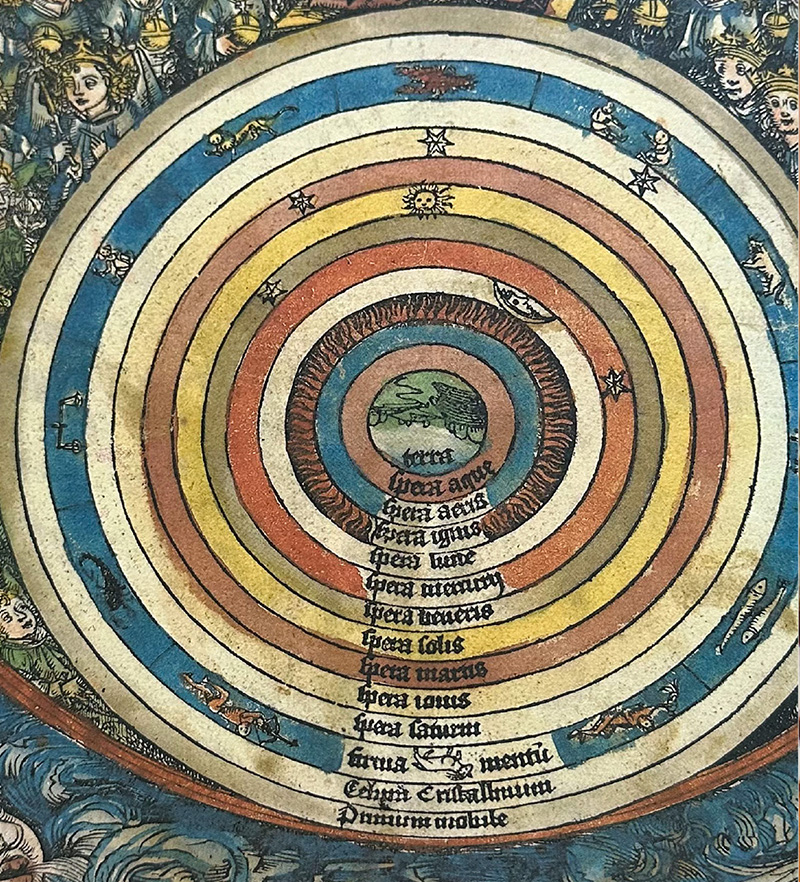 terra
spera aque
spera aeris
Spera ignis
spera lune
spera mercurij
spera veneris
spera solis
spera martis
spera iouis
spera saturni
firma mentū
Celum Cristallinum
Primum mobile